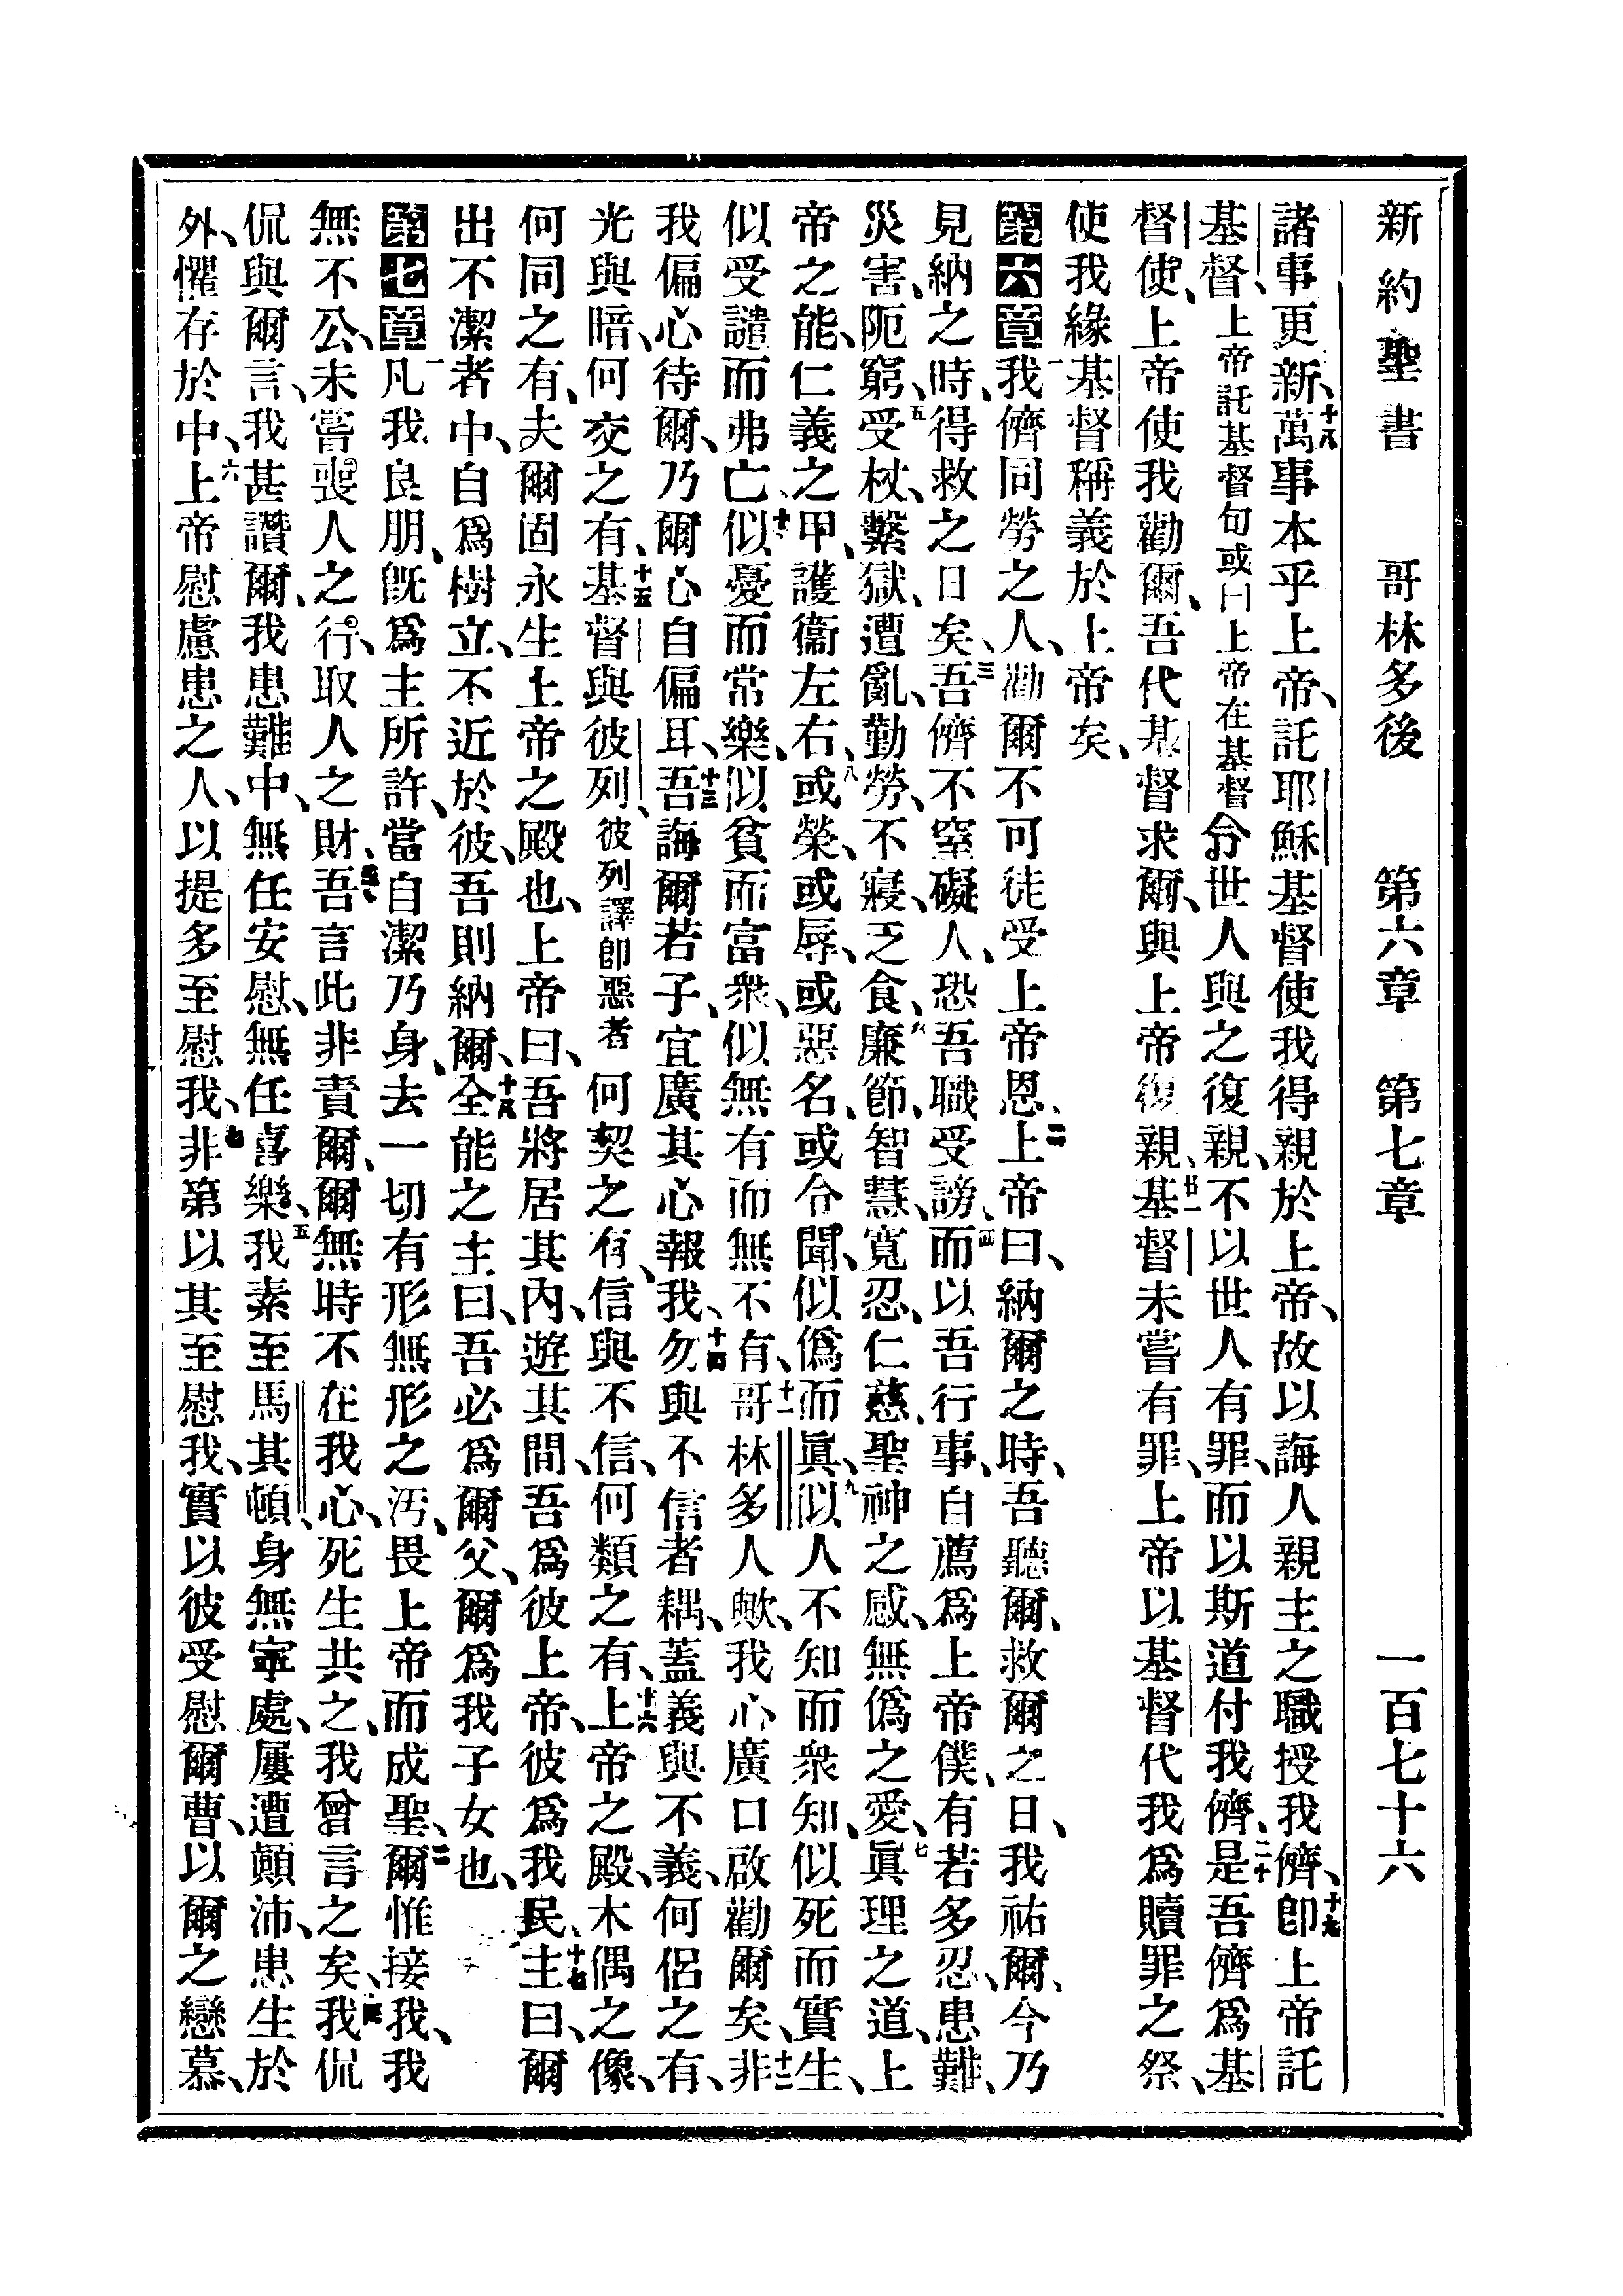 新約聖書　哥林多後　第六章　第七章　一百七十六
諸事更新、十八萬事本乎上帝、託耶穌基督使我得親於上帝、故以誨人親主之職授我儕、十九卽上帝託
基督、上帝託基督句或曰上帝在基督令世人與之復親、不以世人有罪、而以斯道付我儕、二十是吾儕爲基
督使、上帝使我勸爾、吾代基督求爾、與上帝復親、廿一基督未嘗有罪、上帝以基督代我爲贖罪之祭、
使我緣基督稱義於上帝矣、
第六章一我儕同勞之人、勸爾不可徒受上帝恩、二上帝曰、納爾之時、吾聽爾、救爾之日、我祐爾、今乃
見納之時、得救之日矣、三吾儕不窒礙人、恐吾職受謗、四而以吾行事、自薦爲上帝僕、有若多忍、患難、
災害、阨窮、五受杖、繫獄、遭亂、勤勞、不寢、乏食、六廉節、智慧、寬忍、仁慈、聖神之感、無僞之愛、七眞理之道、上
帝之能、仁義之甲、護衞左右、八或榮、或辱、或惡名、或令聞、似僞而眞、九似人不知而衆知、似死而實生、
似受譴而弗亡、十似憂而常樂、似貧而富衆、似無有而無不有、十一哥林多人歟、我心廣口啟勸爾矣、十二非
我偏心待爾、乃爾心自偏耳、十三吾誨爾若子、宜廣其心報我、十四勿與不信者耦、蓋義與不義、何侶之有、
光與暗、何交之有、十五基督與彼列、彼列譯卽惡者何契之有、信與不信、何類之有、十六上帝之殿、木偶之像、
何同之有、夫爾固永生上帝之殿也、上帝曰、吾將居其內、遊其間、吾爲彼上帝、彼爲我民、十七主曰、爾
出不潔者中、自爲樹立、不近於彼、吾則納爾、十八全能之主曰、吾必爲爾父、爾爲我子女也、
第七章一凡我良朋、旣爲主所許、當自潔乃身、去一切有形無形之汚、畏上帝而成聖、二爾惟接我、我
無不公、未嘗喪人之行、取人之財、三吾言此非責爾、爾無時不在我心、死生共之、我曾言之矣、四我侃
侃與爾言、我甚讚爾、我患難中、無任安慰、無任喜樂、五我素至馬其頓、身無寧處、屢遭顚沛、患生於
外、懼存於中、六上帝慰慮患之人、以提多至慰我、七非第以其至慰我、實以彼受慰爾曹、以爾之戀慕、